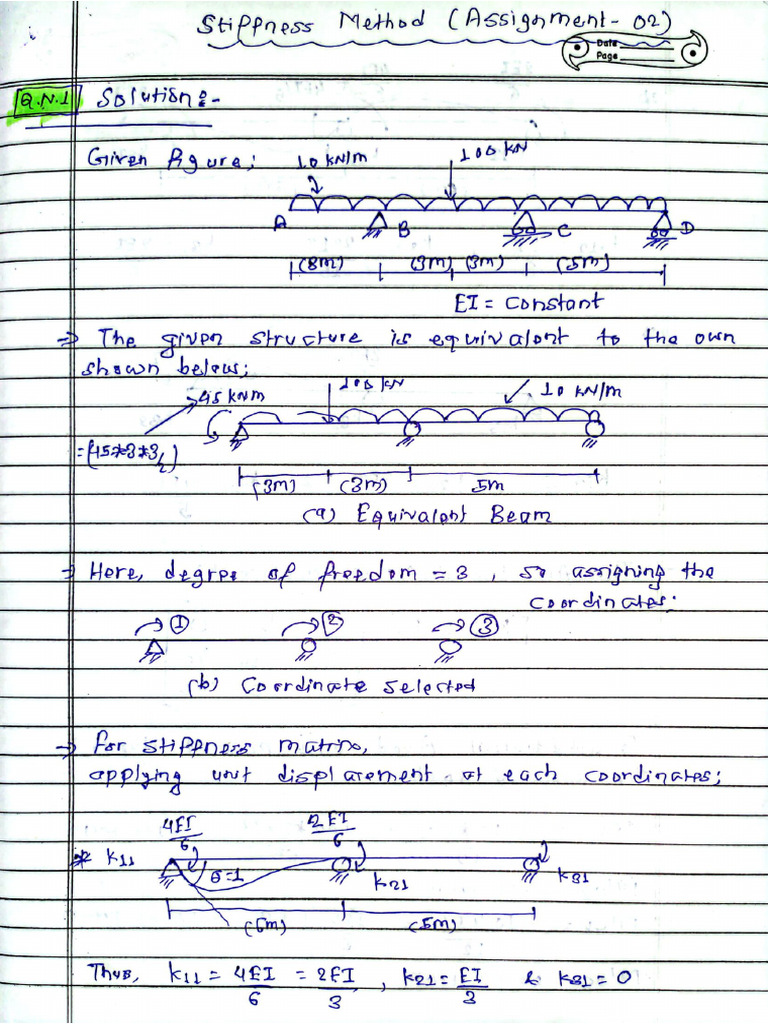 Stiffness Method (Assignment-02)
Date
Page
Q.N.1 Solution:-
Given figure; 10 kN/m 100 kN
A B C D
(3m) (3m) (3m) (5m)
EI = Constant
⇒ The given structure is equivalent to the own
shown below;
45 kNm 100 kN 10 kN/m
(3m) (3m) 5m
(a) Equivalent Beam
⇒ Here, degree of freedom = 3, so assigning the
coordinates:
① ② ③
(b) Coordinate selected
→ for stiffness matrix,
applying unit displacement at each coordinates;
4EI/6 2EI/6
* K11 θ=1 K21 K31
(6m) (5m)
Thus, K11 = 4EI/6 = 2EI/3, K21 = EI/3 & K31 = 0